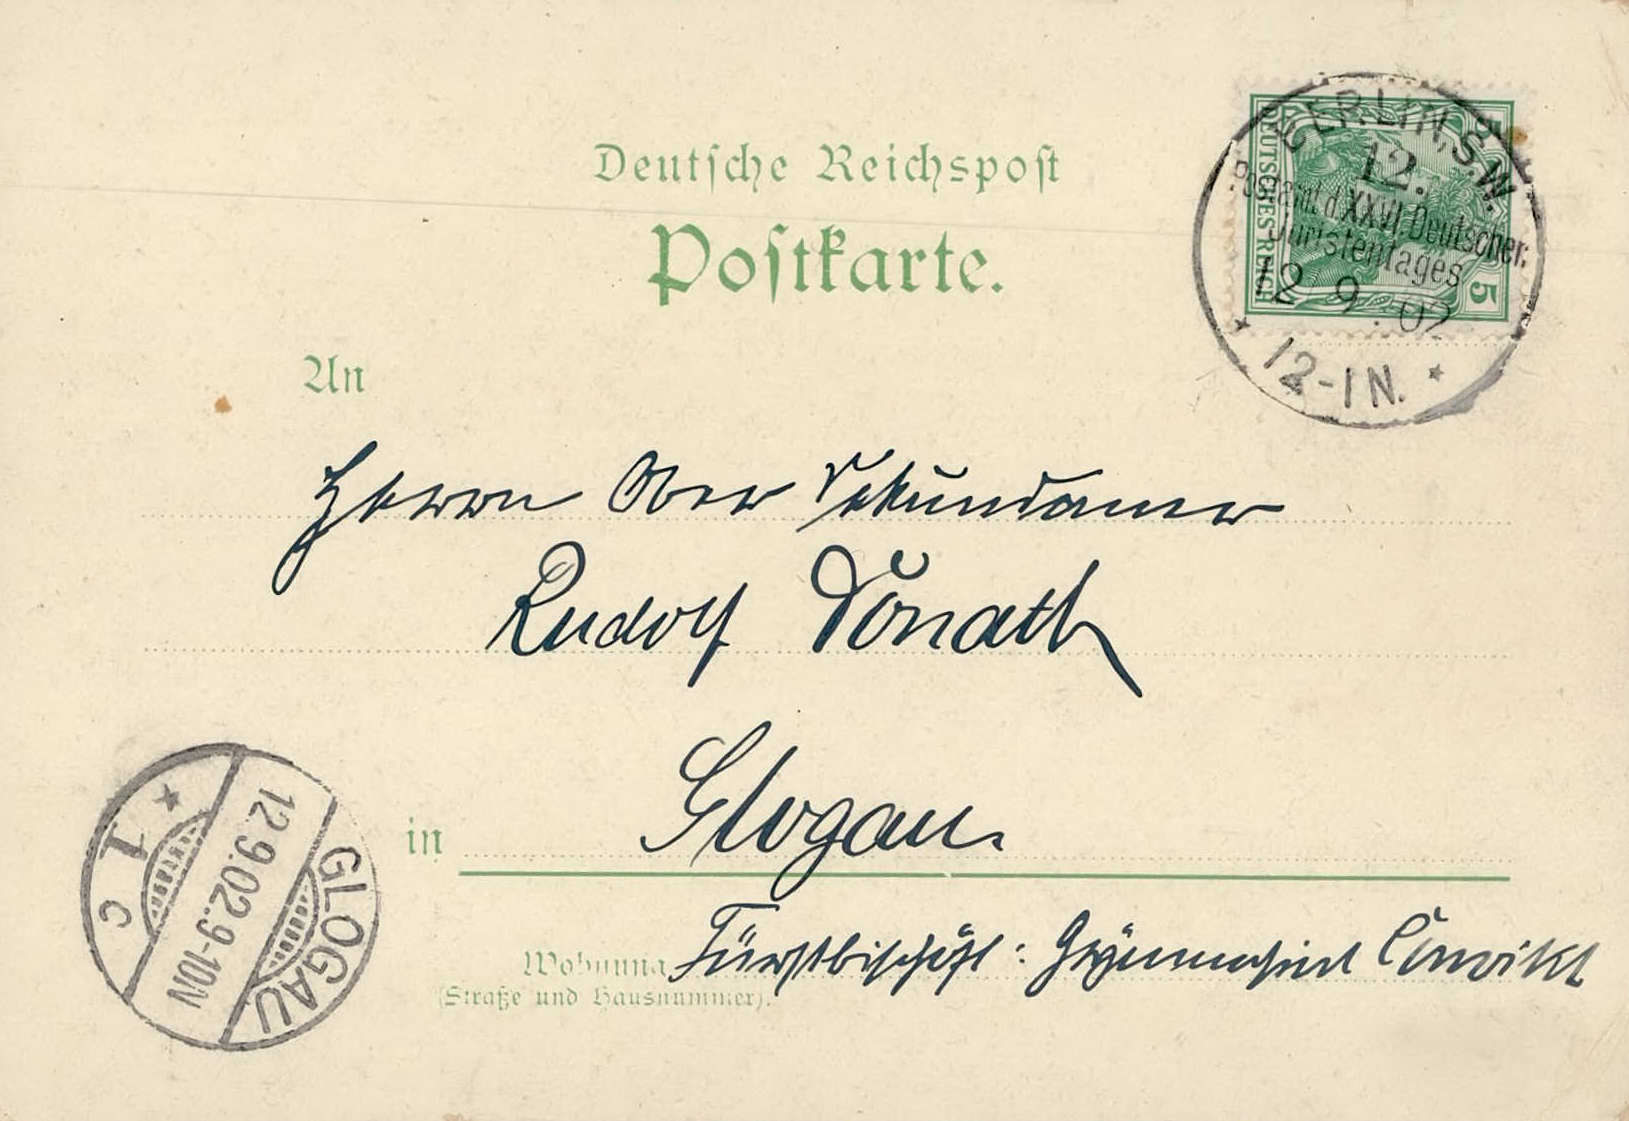 Deutsche Reichspost
Postkarte.
BERLIN, S.W.
12.
Postamt d. XXVI. Deutschen
Juristentages
12 9. 02
12-1N.
DEUTSCHES REICH
5
An
Herrn Ober Sekundaner
Rudolf Donath
in Glogau.
Wohnung Fürstbischöfl: Gymnasial Convikt
(Straße und Hausnummer).
GLOGAU
12.9.02.9-10N
* 1 c